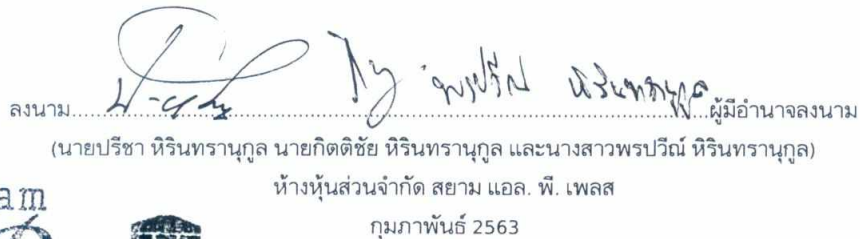 ลงนาม พรปวีณ์ หิรินทรานุกูล ผู้มีอำนาจลงนาม
(นายปรีชา หิรินทรานุกูล นายกิตติชัย หิรินทรานุกูล และนางสาวพรปวีณ์ หิรินทรานุกูล)
ห้างหุ้นส่วนจำกัด สยาม แอล. พี. เพลส
กุมภาพันธ์ 2563